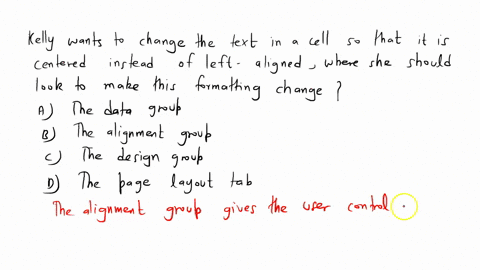 Kelly wants to change the text in a cell so that it is
centered instead of left-aligned, where she should
look to make this formatting change ?
A) The data group
B) The alignment group
C) The design group
D) The page layout tab
The alignment group gives the user control